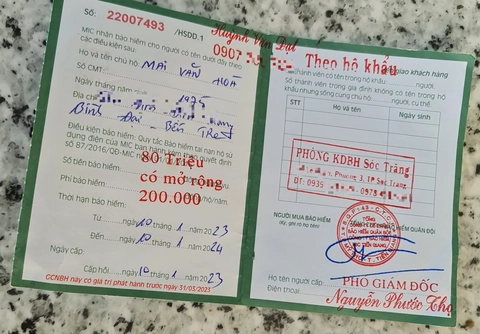 Số: 22007493 /HSDD.1
Huỳnh Văn Đạt
0907
MIC nhận bảo hiểm cho người có tên dưới đây theo
các điều kiện sau:
Họ và tên chủ hộ: MAI VĂN HÒA
Số CMT:
Ngày tháng năm 1975
Địa chỉ
Bình Đại Bến Tre
Điều kiện bảo hiểm: Quy tắc Bảo hiểm tai nạn hộ sử
dụng điện của MIC ban hành kèm theo quyết định
số 87/2016/QĐ-MIC
Số tiền bảo hiểm: 80 Triệu
có mở rộng
Phí bảo hiểm: 200.000
Thời hạn bảo hiểm:
Từ 10 / 1 /năm 2023
Đến 10 / 1 /năm 2024
Ngày cấp:
Cấp hồi 10 / 1 /năm 2023
GCNBH này có giá trị phát hành trước ngày 31/03/2023
Theo hộ khẩu
giao khách hàng
thành viên có tên trong hộ khẩu
Số thành viên trong gia đình không có tên trong hộ
khẩu nhưng sống cùng chủ hộ:
STT Họ và tên Ngày sinh
PHÒNG KDBH Sóc Trăng
Phường 3, TP Sóc Trăng
ĐT: 0939 0978
NGƯỜI MUA BẢO HIỂM
Họ tên người cấp:
PHÓ GIÁM ĐỐC
Điện thoại:
Nguyễn Phước Thọ